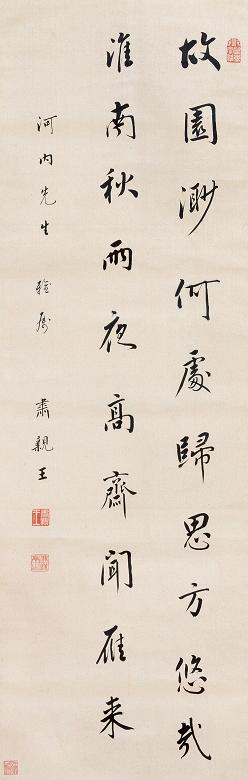 故園渺何處歸思方悠哉
淮南秋雨夜高齋聞雁来
河内先生雅屬 肅親王